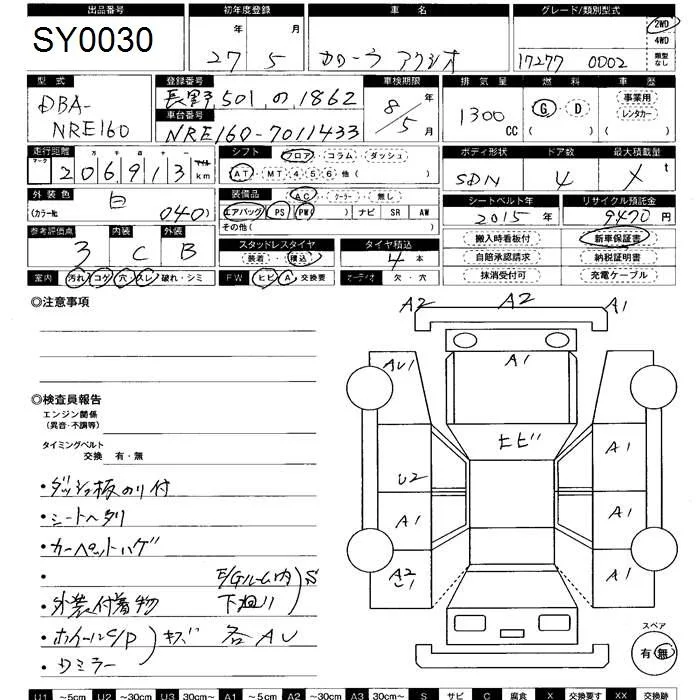 出品番号 初年度登録 車名 グレード/類別型式
SY0030 27年 5月 カローラ アクシオ 17277 0002 2WD 4WD 類型なし
型式 登録番号 車検期限 排気量 燃料 車歴
DBA-NRE160 長野 501 の 1862 8年5月 1300CC G・D ( ) 事業用 レンタカー ( )
車台番号
NRE160-7011433
走行距離 シフト フロア・コラム・ダッシュ ボディ形状 ドア数 最大積載量
マーク 十万千百十一
206913 マイル km AT・MT( 4 5 6 ・ ) SDN 4 X t
外装色 白 装備品 AC・クーラー・無し シートベルト年 リサイクル預託金
(カラー№ 040) エアバック( ) PS PW( ) ナビ SR AW 2015年 9470円
その他( )
参考評価点 内装 外装 スタッドレスタイヤ タイヤ積込 搬入時看板付 新車保証書
3 C B 装着・積込 4本 自賠承認請求 納税証明書
室内 汚れ・コゲ・穴・スレ・破れ・シミ FW ヒビ・A・交換要 オーディオ 欠・穴 抹消受付可 充電ケーブル
◎注意事項
A2 A2 A1
AU1 A1
◎検査員報告
エンジン関係
(異音・不調等)
ヒビ A1
タイミングベルト
交換 有・無
U2
・ダッシュ板のり付
・シートヘタリ
A1 A1
・カーペットハゲ
・ E/Gルーム内 S
A2 A1
・外装付着物 下廻り
・ホイールC/P キズ 各AU
スペア
・サミラー
有・無
U1 ~5cm U2 ~30cm U3 30cm~ A1 ~5cm A2 ~30cm A3 30cm~ S サビ C 腐食 X 交換要す XX 交換跡